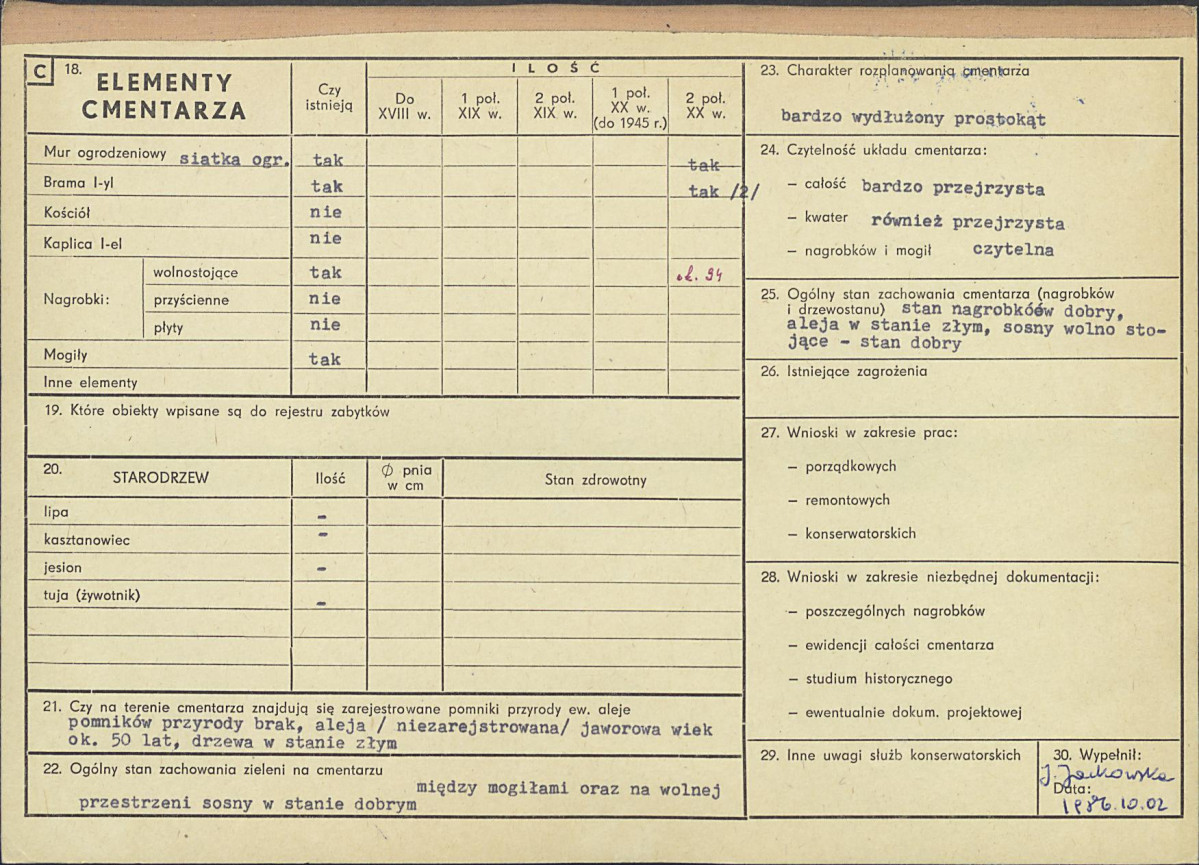 C 18. ELEMENTY CMENTARZA
Czy istnieją
ILOŚĆ
Do XVIII w.
1 poł. XIX w.
2 poł. XIX w.
1 poł. XX w. (do 1945 r.)
2 poł. XX w.
Mur ogrodzeniowy siatka ogr. tak tak
Brama l-yl tak tak /2/
Kościół nie
Kaplica l-el nie
Nagrobki:
wolnostojące tak ok. 94
przyścienne nie
płyty nie
Mogiły tak
Inne elementy
19. Które obiekty wpisane są do rejestru zabytków
20. STARODRZEW Ilość Ø pnia w cm Stan zdrowotny
lipa -
kasztanowiec -
jesion -
tuja (żywotnik) -
21. Czy na terenie cmentarza znajdują się zarejestrowane pomniki przyrody ew. aleje
pomników przyrody brak, aleja / niezarejstrowana/ jaworowa wiek
ok. 50 lat, drzewa w stanie złym
22. Ogólny stan zachowania zieleni na cmentarzu
między mogiłami oraz na wolnej
przestrzeni sosny w stanie dobrym
23. Charakter rozplanowania cmentarza
bardzo wydłużony prostokąt
24. Czytelność układu cmentarza:
– całość bardzo przejrzysta
– kwater również przejrzysta
– nagrobków i mogił czytelna
25. Ogólny stan zachowania cmentarza (nagrobków
i drzewostanu) stan nagrobków dobry,
aleja w stanie złym, sosny wolno sto-
jące - stan dobry
26. Istniejące zagrożenia
27. Wnioski w zakresie prac:
– porządkowych
– remontowych
– konserwatorskich
28. Wnioski w zakresie niezbędnej dokumentacji:
– poszczególnych nagrobków
– ewidencji całości cmentarza
– studium historycznego
– ewentualnie dokum. projektowej
29. Inne uwagi służb konserwatorskich
30. Wypełnił:
J. Jackowska
Data:
1986.10.02